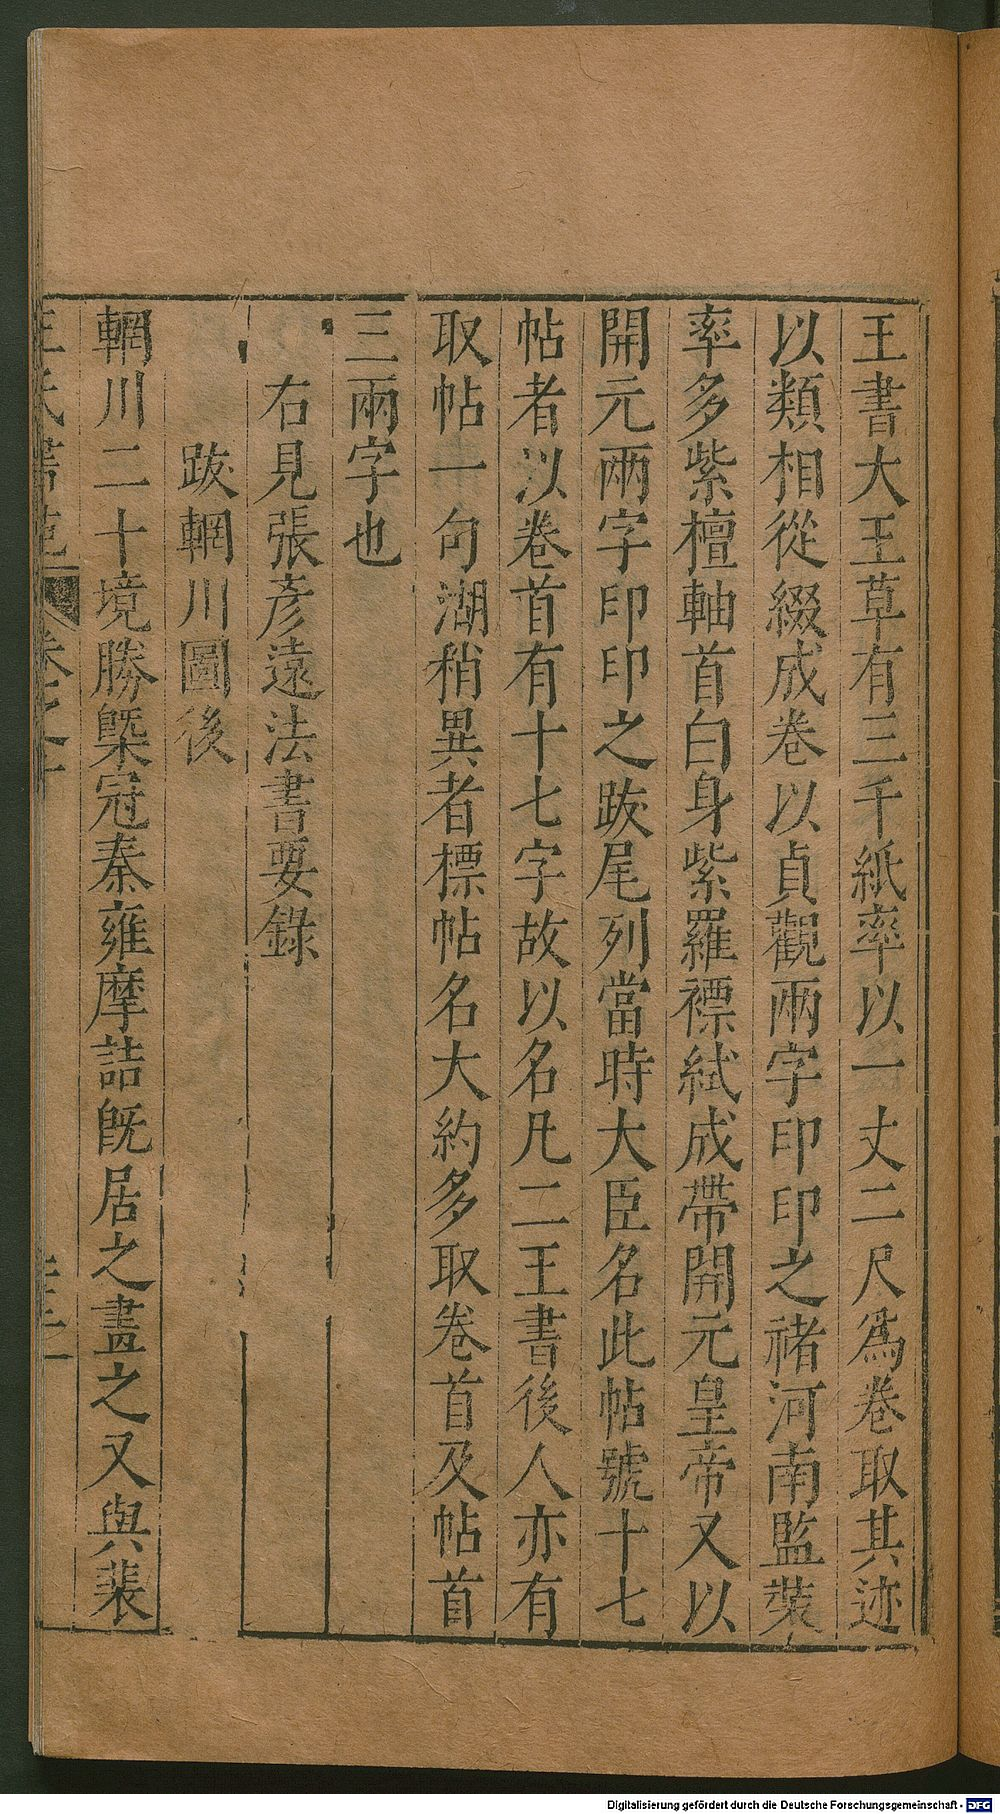 王書大王草有三千紙率以一丈二尺爲卷取其迹
以類相從綴成卷以貞觀兩字印印之禇河南監裝
率多紫檀軸首白身紫羅褾絨成帶開元皇帝又以
開元兩字印印之跋尾列當時大臣名此帖號十七
帖者以卷首有十七字故以名凡二王書後人亦有
取帖一句湖稍異者標帖名大約多取卷首及帖首
三兩字也
右見張彥遠法書要錄
跋輞川圖後
輞川二十境勝槩冠秦雍摩詰旣居之畫之又與裴
王氏書苑 卷之十
Digitalisierung gefördert durch die Deutsche Forschungsgemeinschaft - DFG